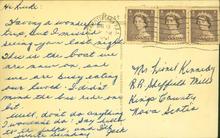 Hi Lunk
Having a wonderful
time, but I missed
seeing you last night.
This is the boat we
are now on, and
we are busy eating
our lunch. I didn't
mind the bus ride one
bit
Well, don't do anything
I wouldn't do! Say hello
to the
Mr. Lionel Kennedy
R.R. Sheffield Mills
Kings County
Nova Scotia